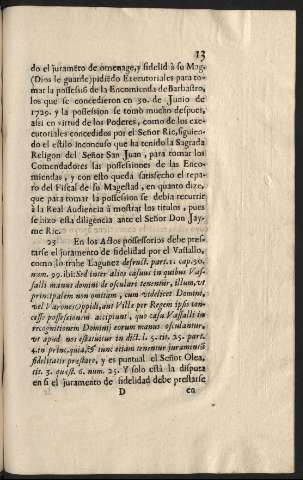 13
do el juramẽto de omenage, y fidelid à su Mag.
(Dios le guarde) pidiẽdo Executoriales para to-
mar la possessiõ de la Encomienda de Barbastro,
los que se concedieron en 30. de Junio de
1729. y la possession se tomò mucho despues,
asi en virtud de los Poderes, como de los exe-
cutoriales concedidos por el Señor Ric, siguien-
do el estilo inconcuso que ha tenido la Sagrada
Religion del Señor San Juan, para tomar los
Comendadores las possessiones de las Enco-
miendas, y con esto queda satisfecho el repa-
ro del Fiscal de su Magestad, en quanto dize,
que para tomar la possession se debia recurrir
à la Real Audiencia à mostrar los titulos, pues
se hizo esta diligencia ante el Señor Don Jay-
me Ric.
23 En los Actos possessorios debe pres-
tarse el juramento de fidelidad por el Vassallo,
como lo trahe Lagunez defensf. part. 1. cap. 30.
num. 99. ibi: Sed inter alios casus in quibus Vas-
salli manus domini de osculare tenentur, illum, ut
principalem non omittam, cum videlicet Domini,
vel Varones Oppidi, aut Ville per Regem ipso ten-
cesse possessionem accipiunt, quo casu Vassalli in
recognitionem Dominij eorum manus osculantur,
ut apud nos estatuitur in dict. l. 5. tit. 25. part.
4. in princ. quia, & tunc etiam tenentur juramentũ
fidelitatis prestare, y es puntual el Señor Olea,
tit. 3. quest. 6. num. 25. Y solo està la disputa
en si el juramento de fidelidad debe prestarse
D en